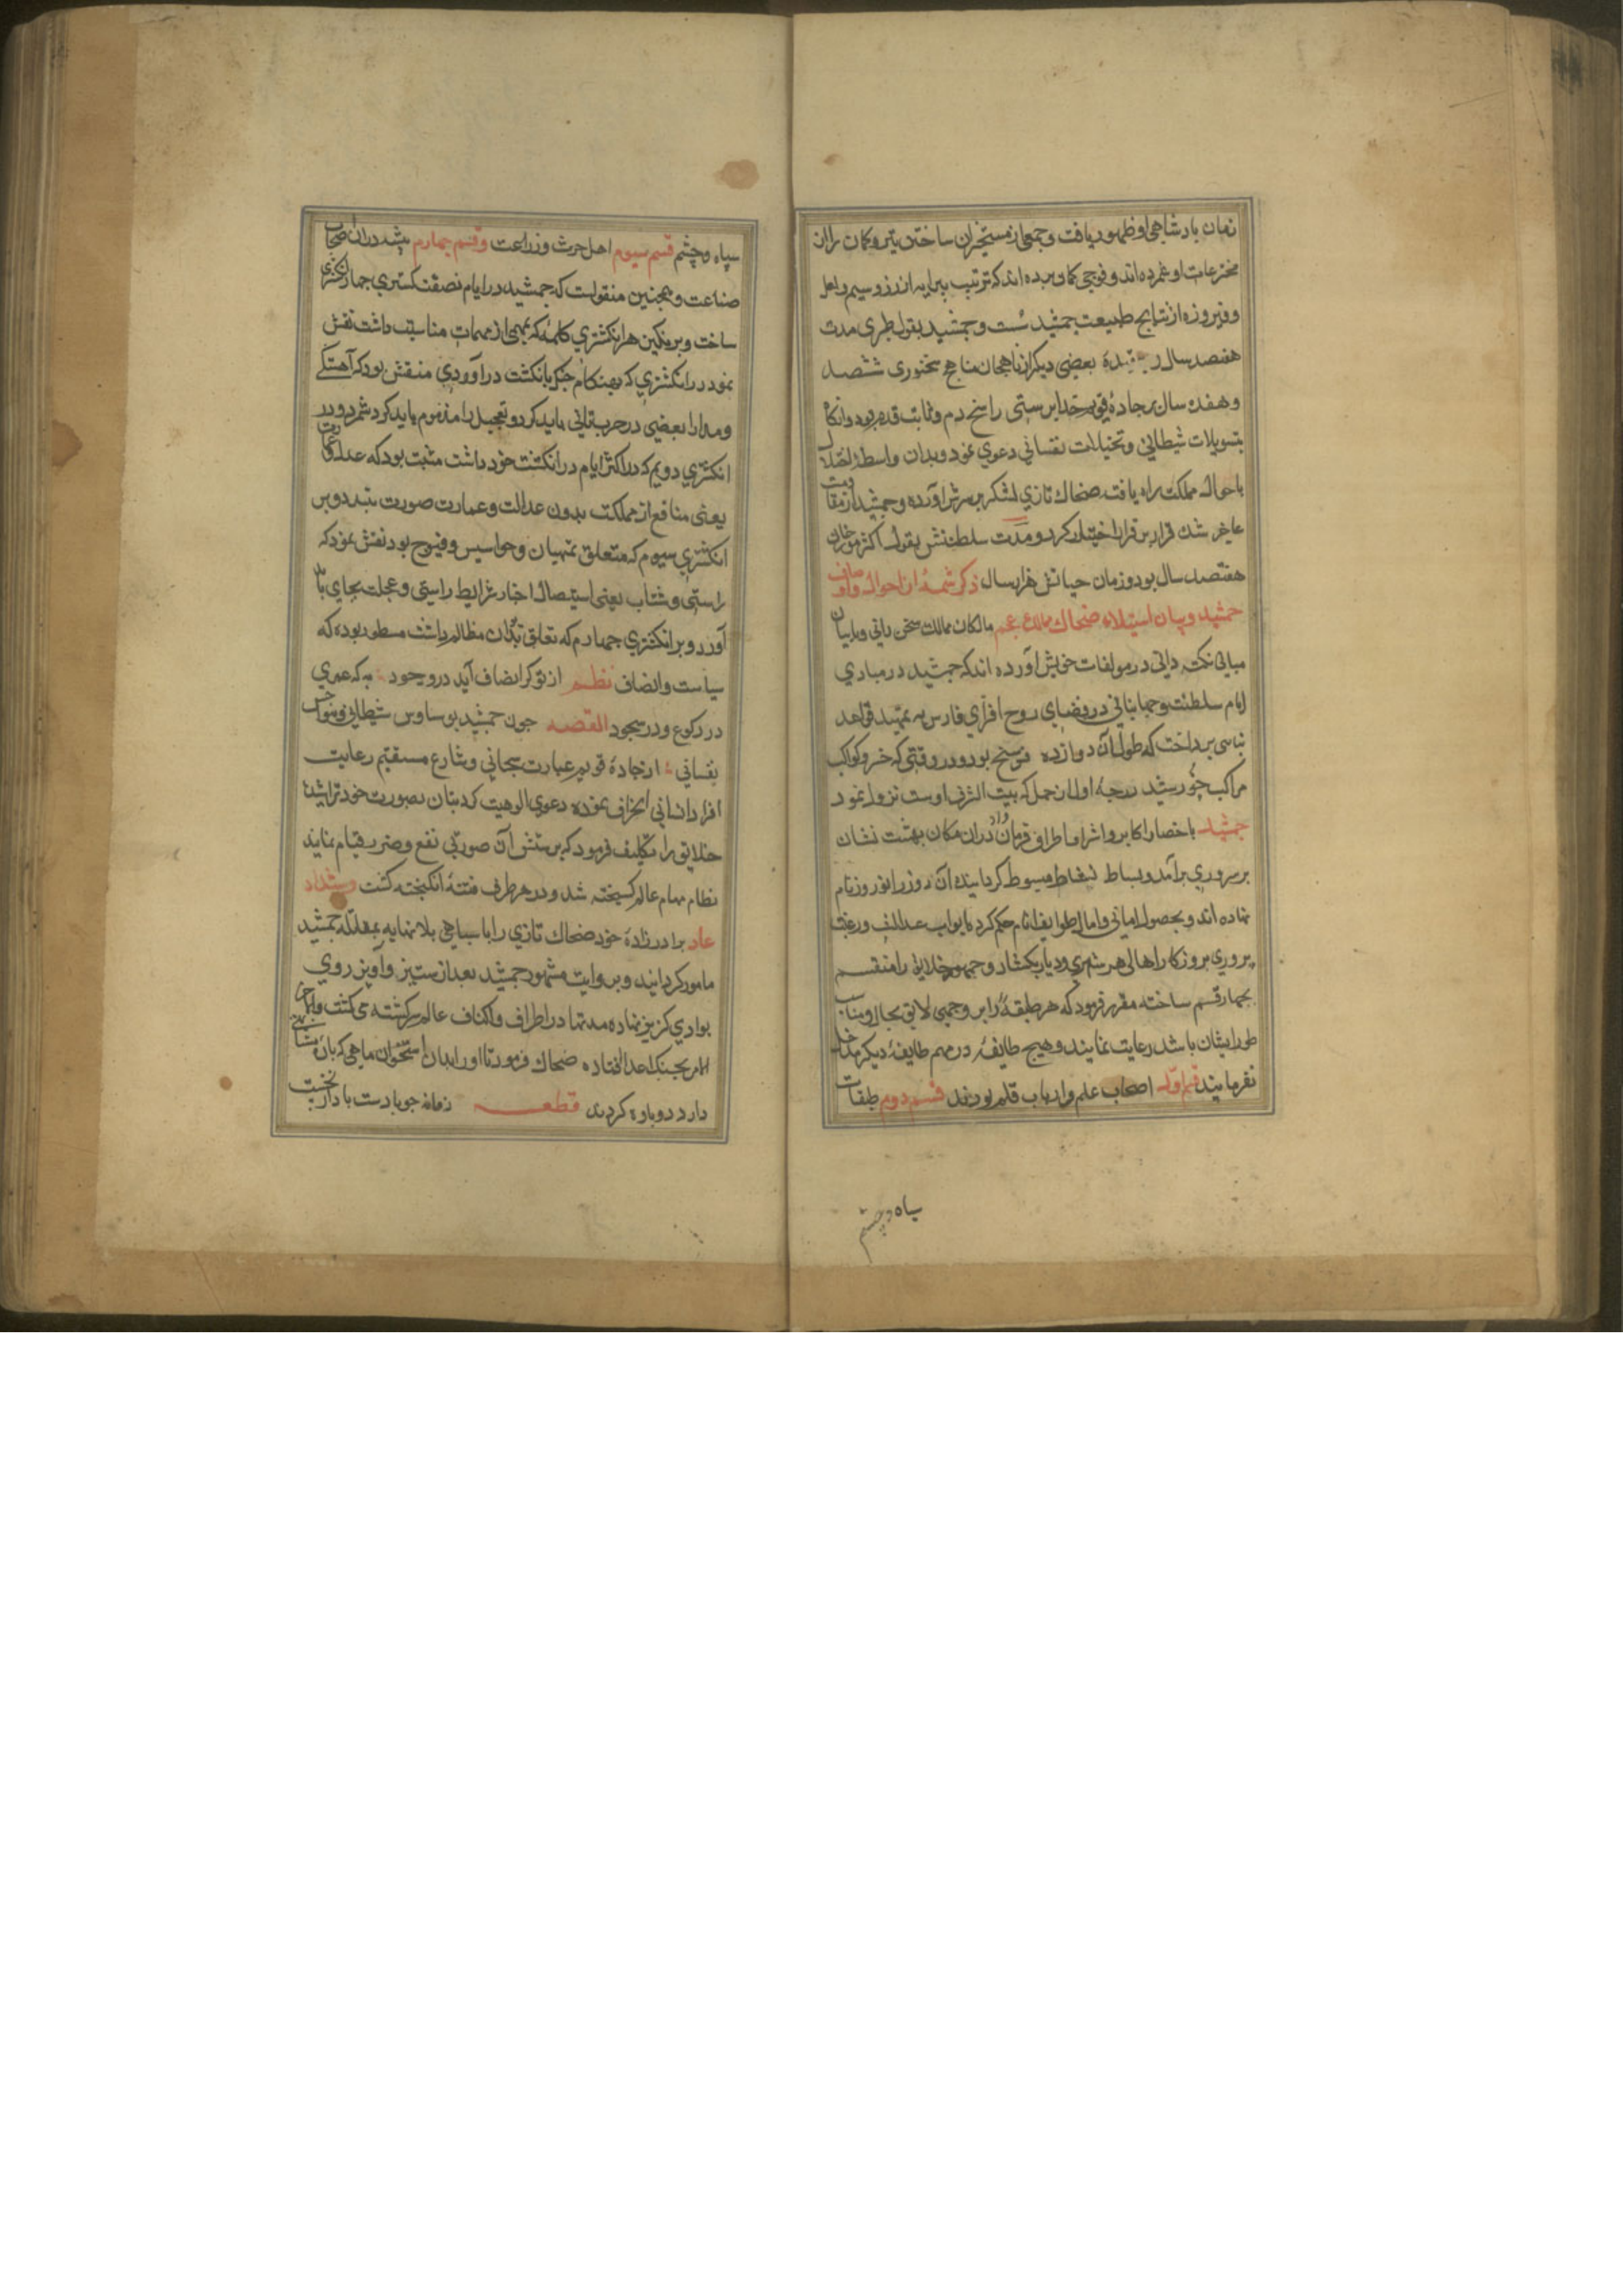 زمان پادشاهی او ظهور یافت و جمعی از مستخبران ساختن تیر و کمان را از
مخترعات او شمرده‌اند و فوجی گمان برده‌اند که ترتیب پیرایه از زر و سیم و لعل
و فیروزه از نتایج طبیعت جمشید است و جمشید بقول طبری مدت
هفتصد سال بعضی دیگر از ناهجان مناهج سخنوری ششصد
و هفده سال بر جاده قویم خدا پرستی راسخ دم و ثابت قدم بود و آنگاه
بتسویلات شیطانی و تخیلات نفسانی دعوی نمود و بدان واسطه اختلال
باحوال مملکت راه یافته ضحاک تازی لشکر بر سرش آورده و جمشید از مقاومت
عاجز شد قرار بر فرار اختیار کرد و مدت سلطنتش بقول اکثر مورخان
هفتصد سال بود و زمان حیاتش هزار سال ذکر شمهٔ از احوال و اوصاف
جمشید و بیان استیلاء ضحاک بممالک عجم مالکان ممالک سخن رانی و بانیان
مبانی نکته دانی در مولفات خویش آورده‌اند که جمشید در مبادی
ایام سلطنت و جهانبانی در فضای روح افزای فارس به تمهید قواعد
بنای پرداخت که طول آن دوازده فرسخ بود و در وقتی که خسرو کواکب
مراکب خورشید بدرجهٔ اول از حمل که بیت الشرف اوست نزول نمود
جمشید باحضار اکابر و اشراف اطراف فرمان داد در آن مکان بهشت نشان
بر سروری برآمد و بساط نشاط مبسوط گردانید آن روز را نوروز نام
نهاده‌اند و بحصول امانی و امال طوایف انام حکم کرد ابواب عدالت و رعیت
پروری بروزگار اهالی هر شهری و دیار بگشاد و جمهور خلایق را منقسم
بچهار قسم ساخته مقرر فرمود که هر طبقهٔ را بر وجهی لایق بحال و مناسب
طور ایشان باشد رعایت نمایند و هیچ طایفهٔ در مهم طایفهٔ دیگر مدخل
نفرمایند قسم اول اصحاب علم و ارباب قلم بودند قسم دوم طبقات
سپاه و چشم
سپاه و چشم قسم سیوم اهل حرث و زراعت و قسم چهارم پیشه‌دران اصحاب
صناعت و همچنین منقولست که جمشید در ایام نصفت گستری چهار انگشتری
ساخت و بر نگین هر انگشتری کلمهٔ که بمهمی از مهمات مناسبت داشت نقش
نمود در انگشتری که بهنگام جنگ بانگشت در آوردی منقش بود که آهستگی
و مدارا یعضی در حرب تانی باید کرد و تعجیل را مذموم باید کرد شمرد و در
انگشتری دویم که در اکثر ایام در انگشت خود داشت مثبت بود که عدل و عمارت
یعنی منافع از مملکت بدون عدالت و عمارت صورت نبندد و بر
انگشتری سیوم که متعلق بمنهیان و جواسیس و فیوج بود نقش نمود که
راستی و شتاب یعنی استیصال اخبار شرایط راستی و عجلت بجای باید
آورد و بر انگشتری چهارم که تعلق بدان مظالم داشت مسطور بوده که
سیاست و انصاف نظم از تو گر انصاف آید در وجود به که عمری
در رکوع و در سجود القصه چون جمشید بوساوس شیطانی و هواجس
نفسانی از جادهٔ قویم عبارت سبحانی و شارع مستقیم رعایت
افراد انسانی انحراف نموده دعوی الوهیت کرد بتان بصورت خود تراشید
خلایق را تکلیف فرمود که پرستش آن صورتی نفع و ضرر قیام نمایند
نظام مهام عالم گسیخته شد و در هر طرف فتنهٔ انگیخته گشت و شداد
عاد برادرزادهٔ خود ضحاک تازی را با سپاهی بلا نهایه بمقاتله جمشید
مامور گردانید و بروایت مشهور جمشید بعد از ستیز و آویز روی
بوادی گریز نهاده مدتها در اطراف و اکناف عالم سرگشته می‌گشت و آخر
الامر بچنگ اعدا افتاده ضحاک فرمود تا او را بدان استخوان ماهی که باره مشابهتی
دارد دوباره کردند قطعه زمانه جو بادست با داز نخست